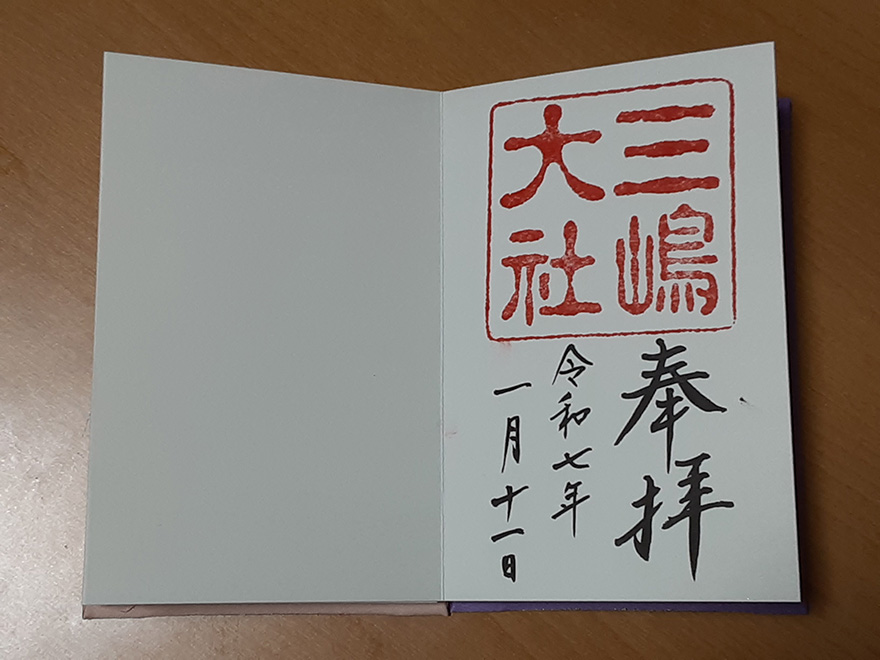 三嶋
大社
奉拝
令和七年
一月十一日